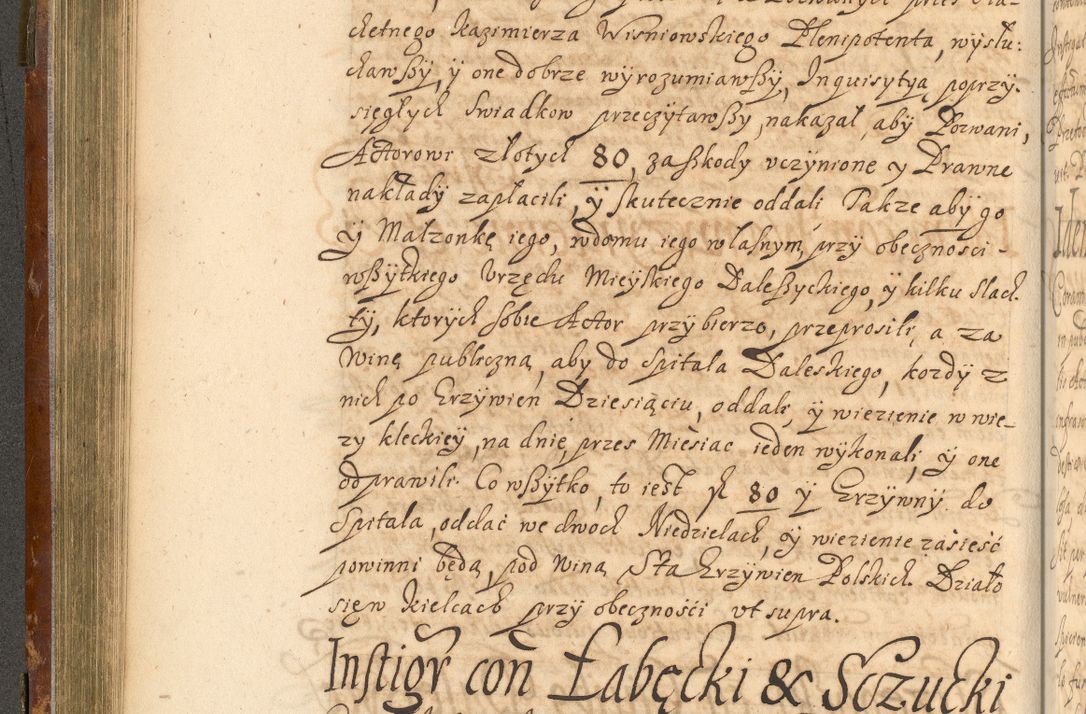 chetnego Kazimierza Wisniowskiego Plenipotenta, wysłu:
chawszÿ, ÿ one dobrze wÿrozumiawszÿ, Inquisytyą poprzÿ-
sięgłych Swiadkow przeczÿtawszÿ, nakazał, abÿ Pozwani,
Aktorowi złotych 80, za szkody vczÿnione y Prawne
nakłady zapłacili, ÿ skutecznie oddali Takze aby go
ÿ Małzonkę iego, w domu iego własnym, przÿ obecznosci -
wszÿtkiego Vrzędu Mieÿskiego Daleszyckiego, ÿ kilku slach-
tÿ, ktorÿch sobie Aktor przÿbierze, przeprosili, a za
Winę publiczną, abÿ do spitala Daleskiego, kozdÿ z
nich po Grzÿwien Dziesiąciu, oddali, ÿ wiezienie w wie-
zy kleckieÿ, na dnie, przes Miesiac ieden wÿkonali, ÿ one
odprawili. Co wszÿtko, to iest zł 80 ÿ Grzÿwnÿ do
Spitala, oddać we dwoch Niedzielach, ÿ wiezienie zasieść
powinni będą, pod Winą Sta Grzÿwien Polskich. Działo
się w Kielcach przÿ obecznośći vt supra.
Instigr con Łabęcki & Sczucki